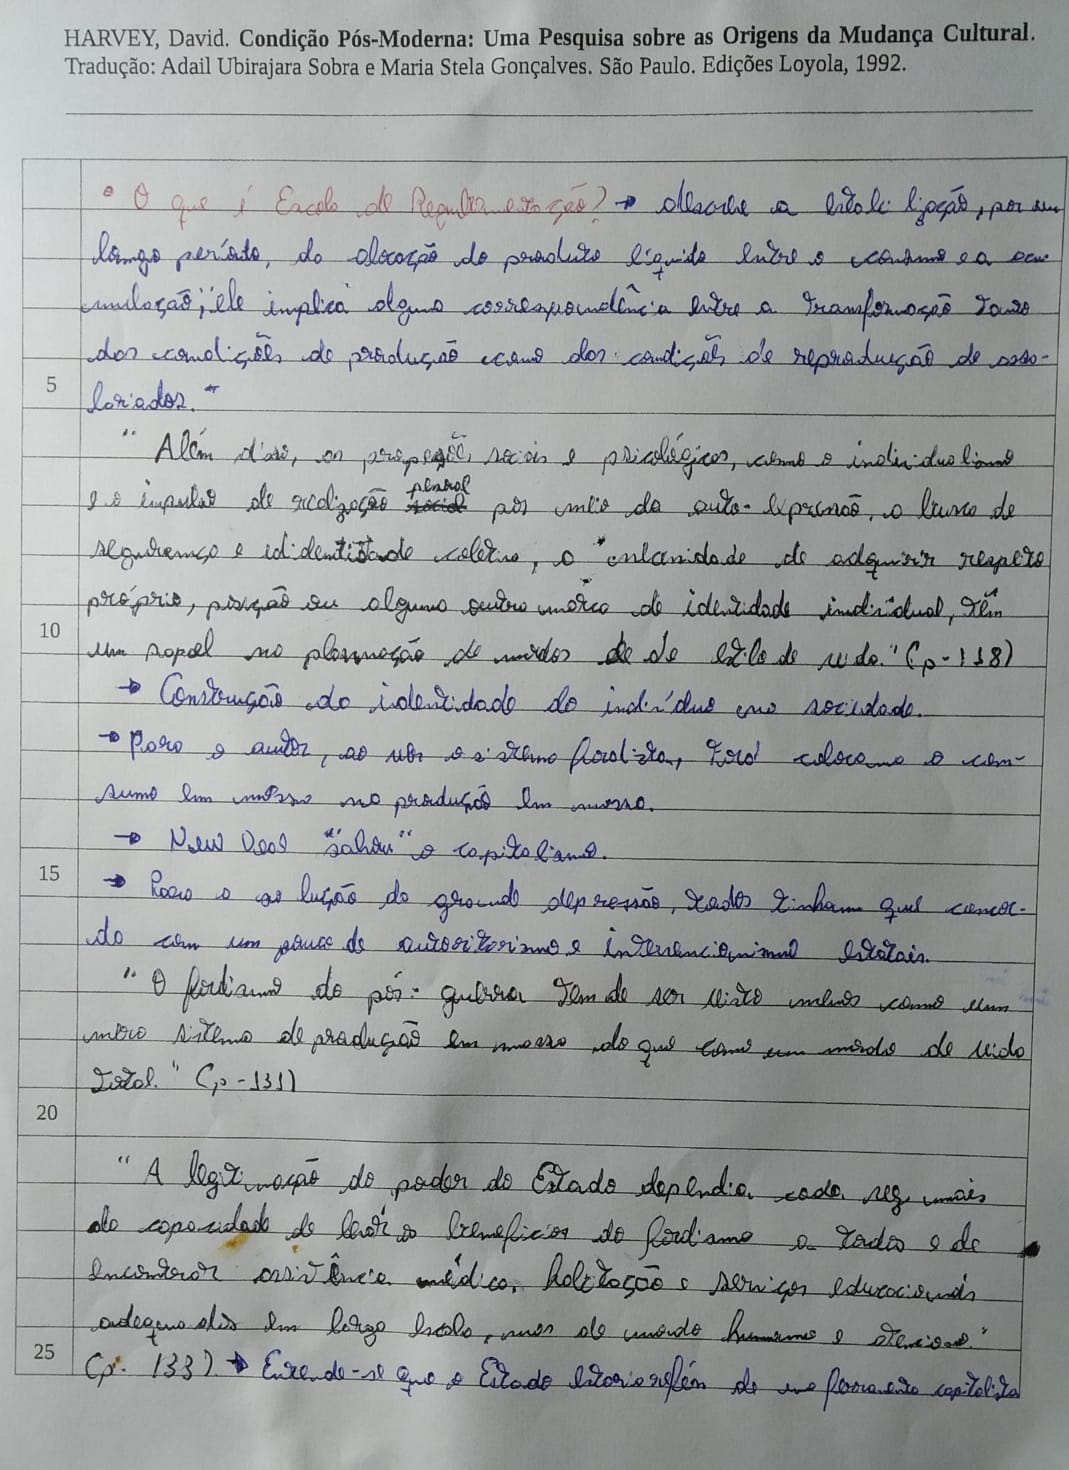 HARVEY, David. Condição Pós-Moderna: Uma Pesquisa sobre as Origens da Mudança Cultural.
Tradução: Adail Ubirajara Sobra e Maria Stela Gonçalves. São Paulo. Edições Loyola, 1992.
• O que é Escola de Regulamentação? → descreve a estabilização, por um
longo período, da alocação do produto líquido entre o consumo e a acu-
mulação; ele implica alguma correspondência entre a transformação tanto
das condições de produção como das condições de reprodução de assa-
5 lariados."
"Além disso, as propensões sociais e psicológicas, como o individualismo
e o impulso de realização pessoal por meio da auto-expressão, a busca de
segurança e identidade coletiva, a de adquirir respeito
próprio, posição ou alguma outra marca de identidade individual, têm
10 um papel na plasmação de modos de de estilo de vida." (p-118)
→ Construção da identidade do indivíduo na sociedade.
→ Para o autor, ao ver o sistema fordista, Ford coloca o con-
sumo em massa na produção em massa.
→ New Deal "salvou" o capitalismo.
15 → Para a solução da grande depressão, todos tinham que concor-
da com um pouco de autoritarismo e intervencionismo estatais.
"O fordismo do pós-guerra tem de ser visto menos como um
mero sistema de produção em massa do que como um modo de vida
total." (p-131)
20
"A legitimação do poder do Estado dependia cada vez mais
da capacidade de levar os benefícios do fordismo a todos e de
encontrar assistência médica, habitação e serviços educacionais
adequados em larga escala, mas de modo humano e atencioso."
25 (p. 133). → Entende-se que o Estado estaria refém do capitalista